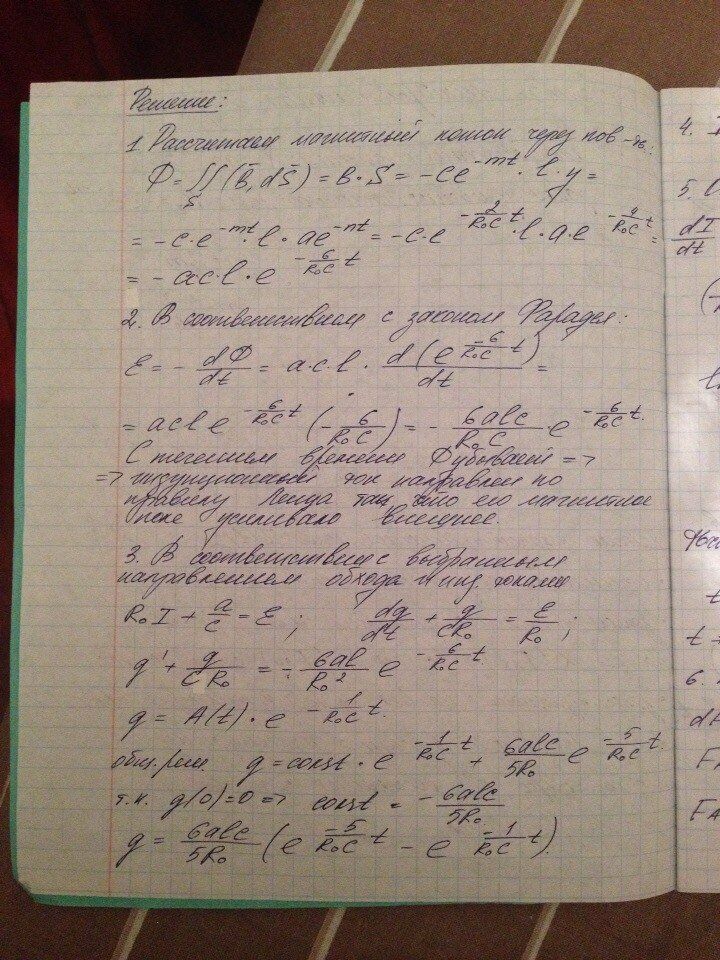 Решение:
1. Рассчитаем магнитный поток через пов-ть:
Ф = ∬ₛ (B̄, dS̄) = B·S = -ce^{-mt}·l·y =
= -c·e^{-mt}·l·ae^{-nt} = -c·e^{-\frac{2}{R₀C}t}·l·a·e^{-\frac{4}{R₀C}t} =
= -ac·l·e^{-\frac{6}{R₀C}t}
2. В соответствием с законом Фарадея:
ε = -\frac{dФ}{dt} = a·c·l·\frac{d(e^{\frac{-6}{R₀C}t})}{dt} =
= acle^{-\frac{6}{R₀C}t}(-\frac{6}{R₀C}) = -\frac{6alc}{R₀C}e^{-\frac{6}{R₀C}t}
С течением времени Ф убывает =>
=> индукционный ток направлен по
правилу Ленца так, что его магнитное
поле усиливало внешнее.
3. В соответствии с выбранным
направлением обхода и инд. токами
R₀I + \frac{q}{c} = ε; \frac{dq}{dt} + \frac{q}{CR₀} = \frac{ε}{R₀};
q' + \frac{q}{CR₀} = -\frac{6al}{R₀²}e^{-\frac{6}{R₀C}t}
q = A(t)·e^{-\frac{1}{R₀C}t}
общ. реш. q = const·e^{-\frac{1}{R₀C}t} + \frac{6alc}{5R₀}e^{-\frac{5}{R₀C}t}
т.к. q(0)=0 => const = -\frac{6alc}{5R₀}
q = \frac{6alc}{5R₀}(e^{\frac{-5}{R₀C}t} - e^{\frac{-1}{R₀C}t}).
4.
5.
\frac{dI}{dt}
6.